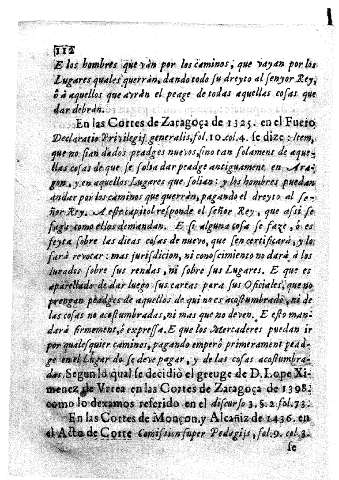 112
E los hombres que vàn por los caminos, que vayan por los
Lugares quales querràn, dando todo su dreyto al senyor Rey,
ò à aquellos que avràn el peage de todas aquellas cosas que
dar debràn.
En las Cortes de Zaragoça de 1325. en el Fuero
Declaratio Privilegij generalis, fol. 10. col. 4. se dize: Item,
que no sian dados peadges nuevos, sino tan solament de aque-
llas cosas de que se solia dar peadge antiguament en Ara-
gon, y en aquellos Lugares que solian: y los hombres puedan
andar por los caminos que querràn, pagando el dreyto al se-
ñor Rey. A este capitol responde el señor Rey, que assi se
faga como ellos demandan. E si alguna cosa se faze, ò es
feyta sobre las ditas cosas de nuevo, que sen certificarà, y lo
farà revocar: mas jurisdicion, ni conoscimiento no darà à los
Iurados sobre sus rendas, ni sobre sus Lugares. E que es
aparellado de dar luego sus cartas para sus Oficiales, que no
prengan peadges de aquellos de qui no es acostumbrado, ni de
las cosas no acostumbradas, ni mas que no deven. E esto man-
darà firmement, ò expressa. E que los Mercaderes puedan ir
por qualesquier caminos, pagando emperò primerament pead-
ge en el Lugar do se deve pagar, y de las cosas acostumbra-
das. Segun lo qual se decidiò el greuge de D. Lope Xi-
menez de Vrrea en las Cortes de Zaragoça de 1398.
como lo dexamos referido en el discurso 3. §. 2. fol. 73.
En las Cortes de Monçon, y Alcañiz de 1436. en
el Acto de Corte Comission super Pedagijs, fol. 9. col. 3.
se